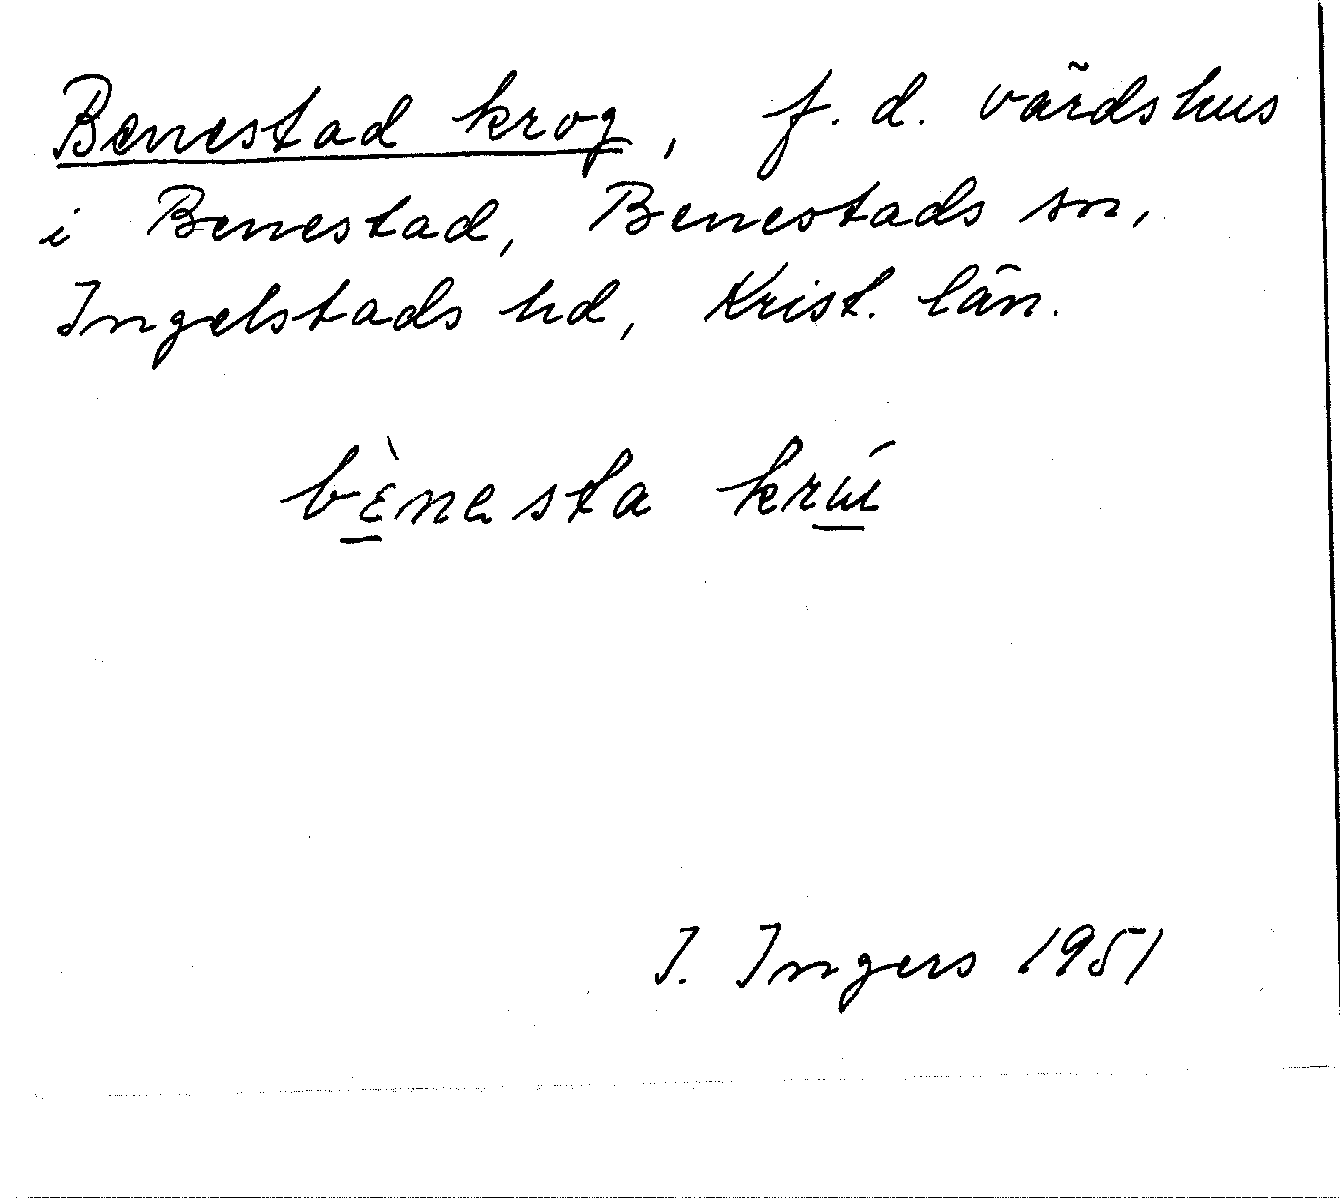 Benestad krog, f. d. värdshus
i Benestad, Benestads sn,
Ingelstads hd, Krist. län.
bɛ̀nesta krɯ́
I. Ingers 1951